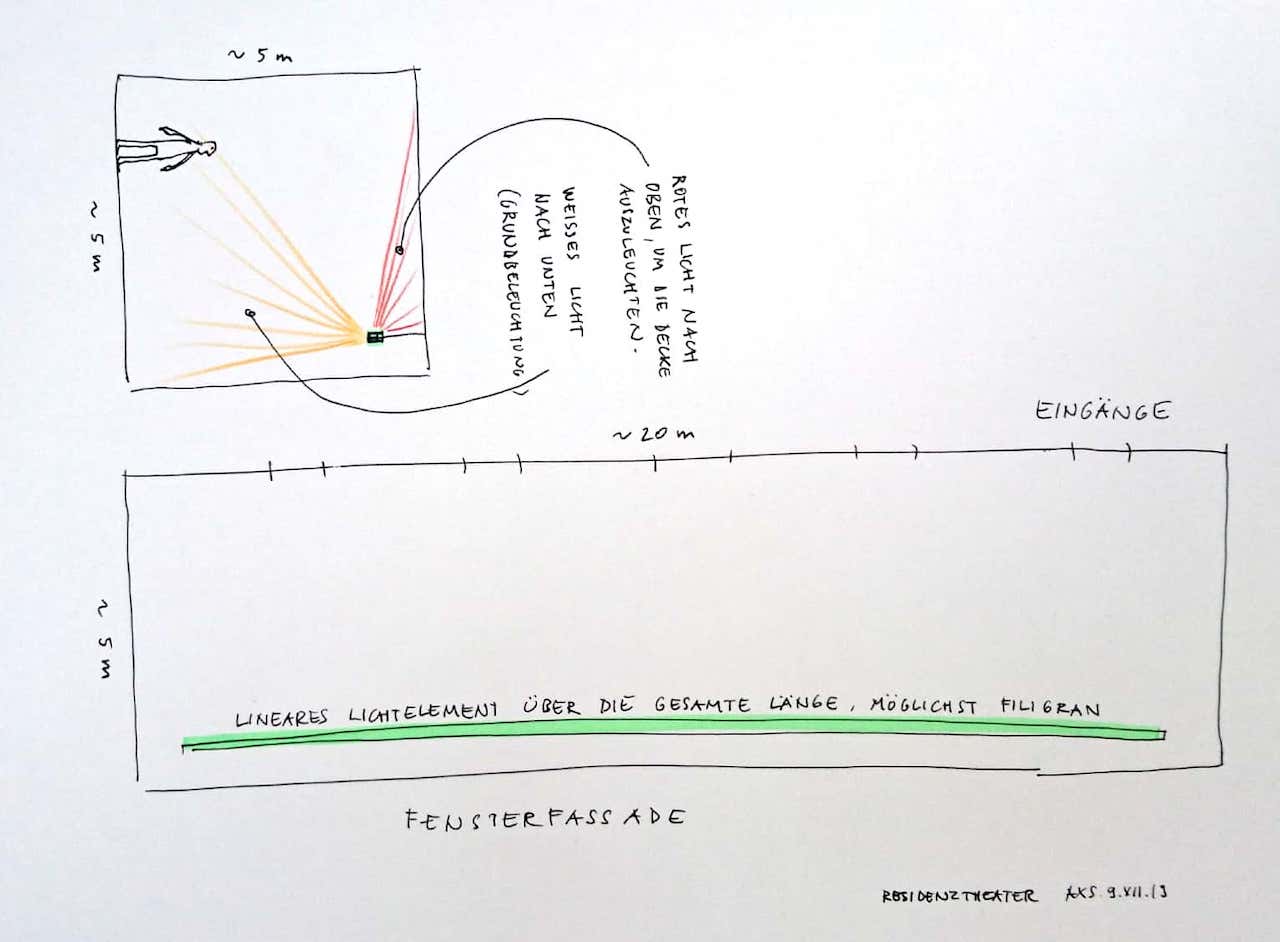 ~ 5 m
~ 5 m
ROTES LICHT NACH
OBEN, UM DIE DECKE
AUSZULEUCHTEN.
WEISSES LICHT
NACH UNTEN
(GRUNDBELEUCHTUNG)
EINGÄNGE
~ 20 m
~ 5 m
LINEARES LICHTELEMENT ÜBER DIE GESAMTE LÄNGE, MÖGLICHST FILIGRAN
FENSTERFASSADE
RESIDENZTHEATER AXS. 9.XII.13